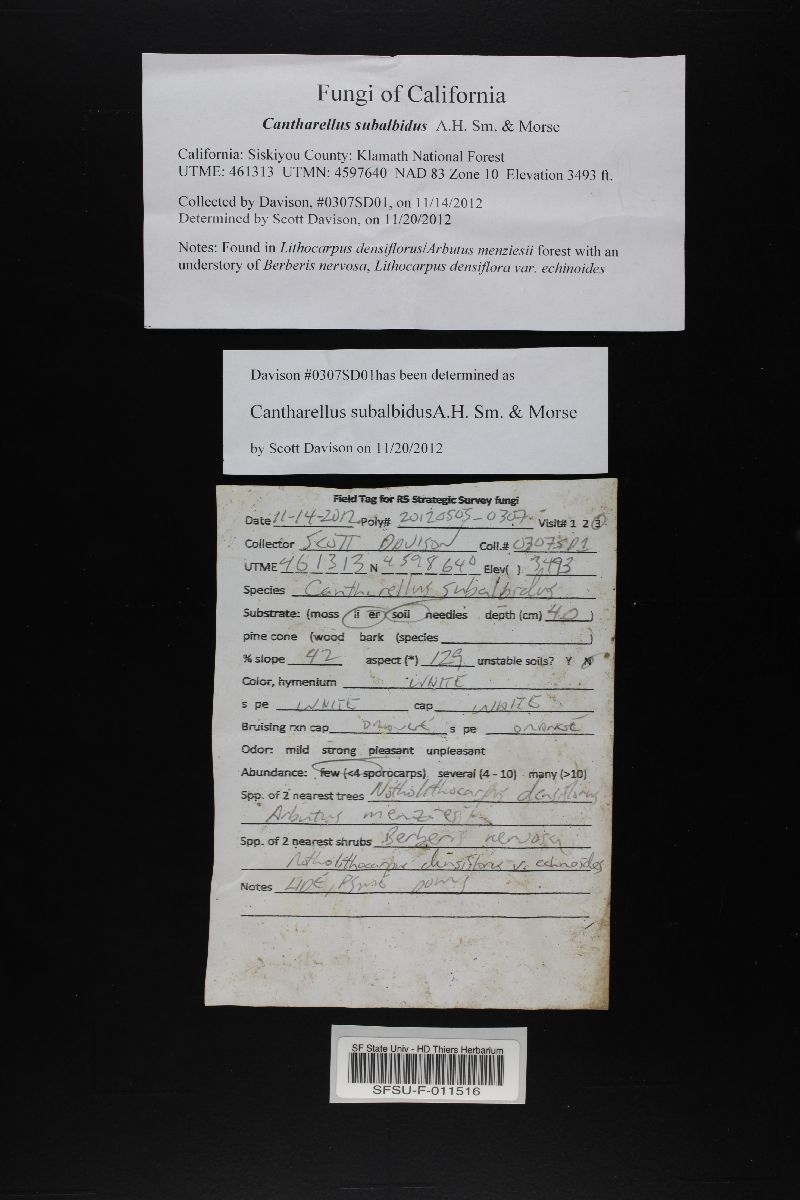 Fungi of California
Cantharellus subalbidus A.H. Sm. & Morse
California: Siskiyou County: Klamath National Forest
UTME: 461313 UTMN: 4597640 NAD 83 Zone 10 Elevation 3493 ft.
Collected by Davison, #0307SD01, on 11/14/2012
Determined by Scott Davison, on 11/20/2012
Notes: Found in Lithocarpus densiflorus/Arbutus menziesii forest with an
understory of Berberis nervosa, Lithocarpus densiflora var. echinoides
Davison #0307SD01has been determined as
Cantharellus subalbidusA.H. Sm. & Morse
by Scott Davison on 11/20/2012
Field Tag for R5 Strategic Survey fungi
Date 11-14-2012 Poly# 20120505-0307 Visit# 1 2 3
Collector SCOTT DAVISON Coll.# 0307SD1
UTME 461313 N 4598640 Elev( ) 3,493
Species Cantharellus subalbidus
Substrate: (moss li er soil needles depth (cm) 40 )
pine cone (wood bark (species )
% slope 42 aspect (*) 129 unstable soils? Y N
Color, hymenium WHITE
s pe WHITE cap WHITE
Bruising rxn cap s pe ORANGE
Odor: mild strong pleasant unpleasant
Abundance: few (<4 sporocarps) several (4 - 10) many (>10)
Spp. of 2 nearest trees Notholithocarpus densiflorus
Arbutus menziesii
Spp. of 2 nearest shrubs Berberis nervosa
Notholithocarpus densiflorus v. echinoides
Notes LIDE, PSME
SF State Univ - HD Thiers Herbarium
SFSU-F-011516